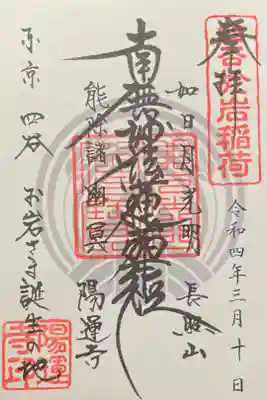 奉拝
令和四年三月十日
如日月光明 長照山
南無妙法蓮華経
能除諸幽冥 陽運寺
東京 四谷 お岩さま誕生の地
陽運寺印